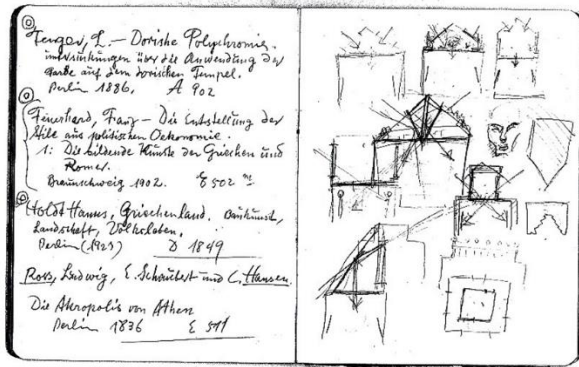 Fenger, L. — Dorische Polychromie.
untersuchungen über die Anwendung der
Farbe auf dem dorischen Tempel.
Berlin 1886. A 902
Feuerhard, Franz — Die Entstellung der
Stile aus politischen Oekonomie.
1: Die bildende Künste der Griechen und
Romer.
Braunschweig 1902. E 502
Holdt Hanns, Griechenland. Baukunst,
Landschaft, Volksleben.
Berlin (1923) D 1849
Ross, Ludwig, E. Schaubert und C. Hansen.
Die Akropolis von Athen
Berlin 1836 E 511